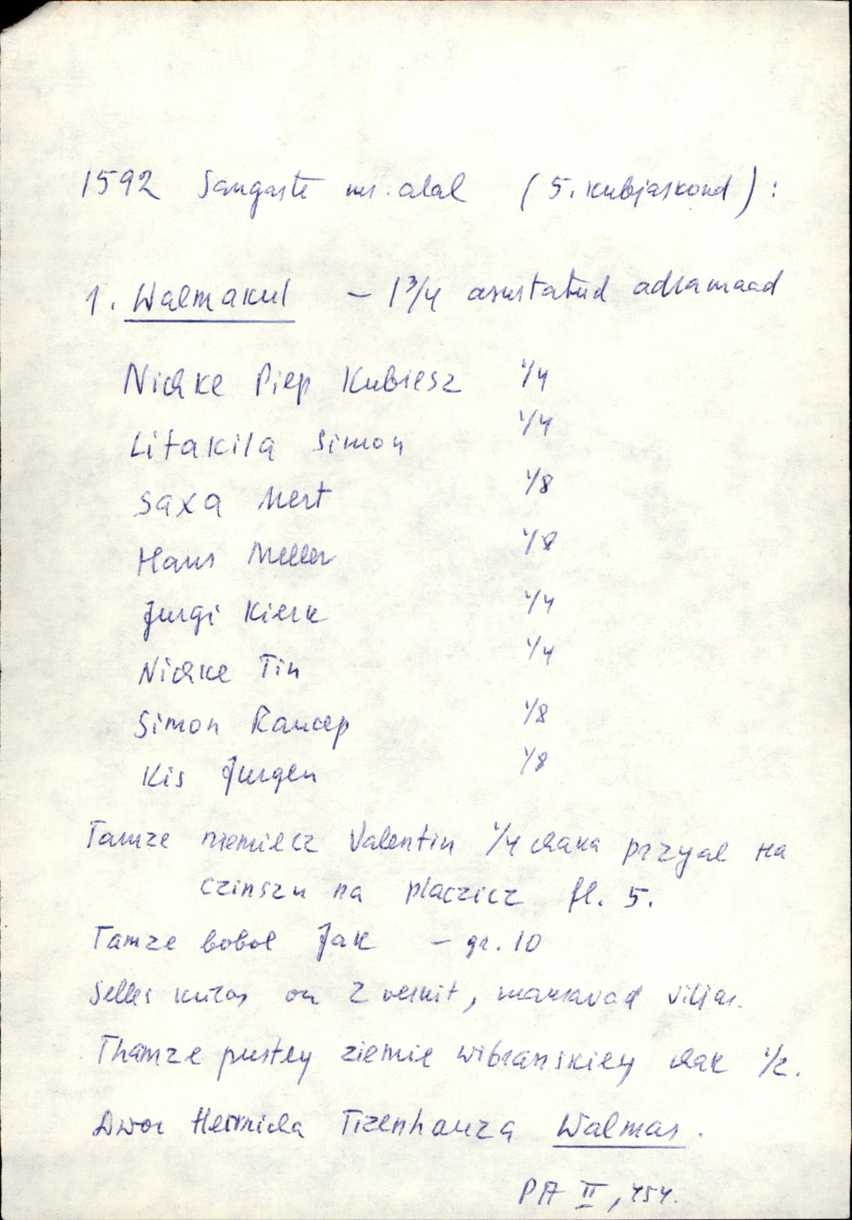 1592 Sangaste ms. alal (5. kubjaskond):
1. Walmakul - 1 3/4 asustatud adramaad
Nichke Piep Kubiesz 1/4
Litakila Simon 1/4
Saxa Mert 1/8
Hans Meller 1/8
Jurgi Kierk 1/4
Nichke Tin 1/4
Simon Rancep 1/8
Kis Jurgen 1/8
Tamze niemiecz Valentin 1/4 chaka przyal na
czinszu na placzicz fl. 5.
Tamze bobol Jak - gr. 10
Selles külas on 2 veskit, maksavad viljas.
Thamze pustey ziemie wibranskiey chak 1/2.
Dwor Heinricha Tizenhauza Walmas.
PA II, 454.